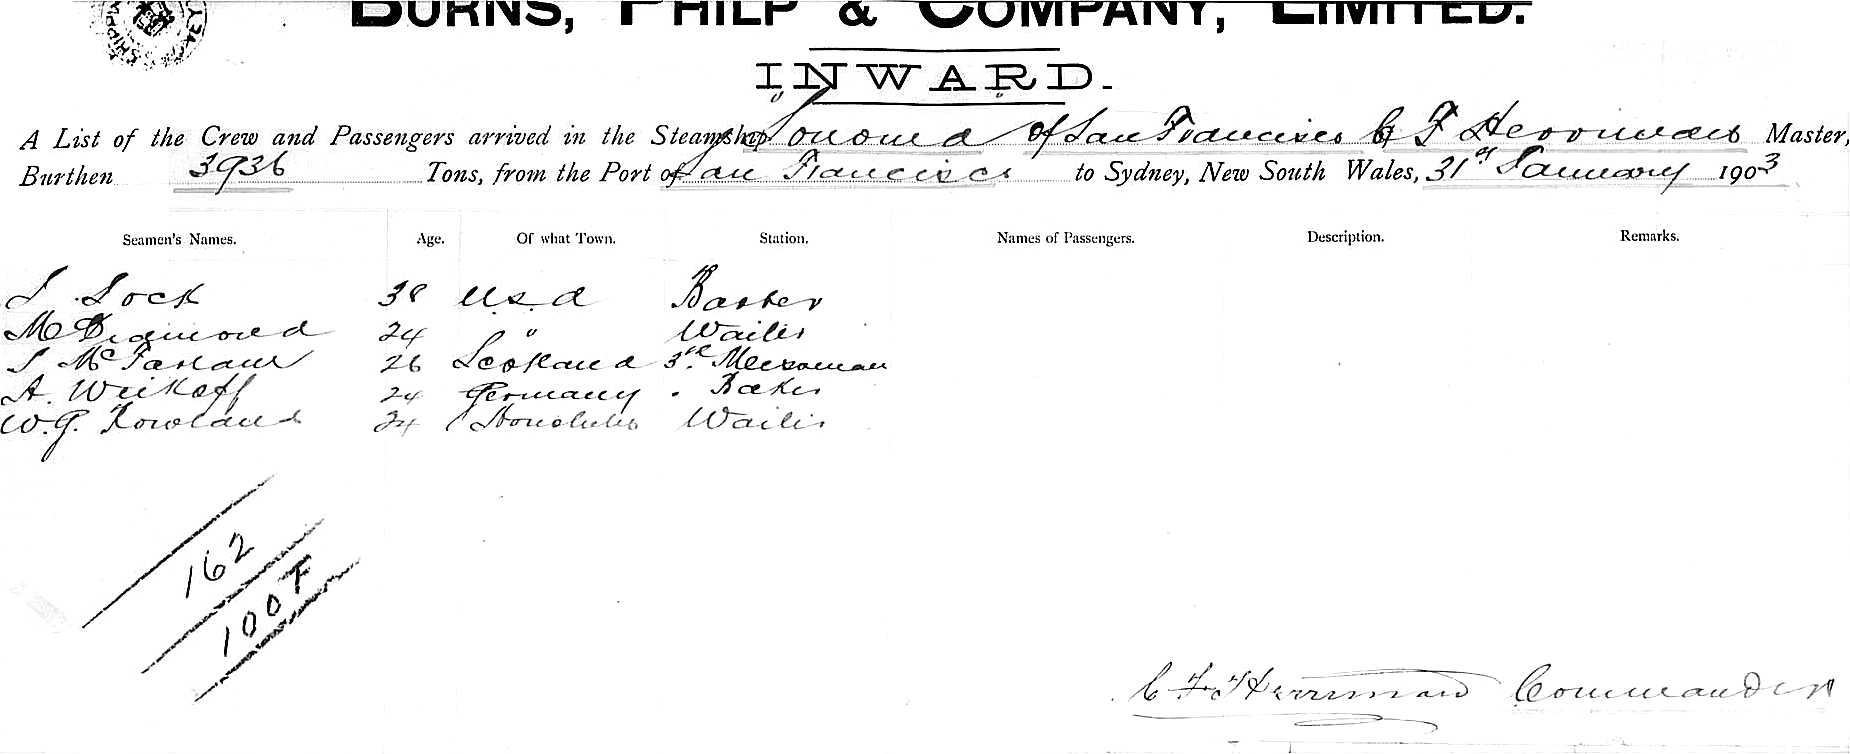 BURNS, PHILP & COMPANY, LIMITED.
INWARD.
A List of the Crew and Passengers arrived in the Steamship "Sonoma" of San Francisco C F Herriman Master,
Burthen 3936 Tons, from the Port of San Francisco to Sydney, New South Wales, 31st January 1903
Seamen's Names. Age. Of what Town. Station. Names of Passengers. Description. Remarks.
Lock 38 U.S.A Barber
McDiamond 24 " Waiter
McFarlane 26 Scotland 3rd Messman
A. Weikoff 24 Germany . Baker
W.G. Rowland 24 Honolulu Waiter
162
100
C F Herriman Commander